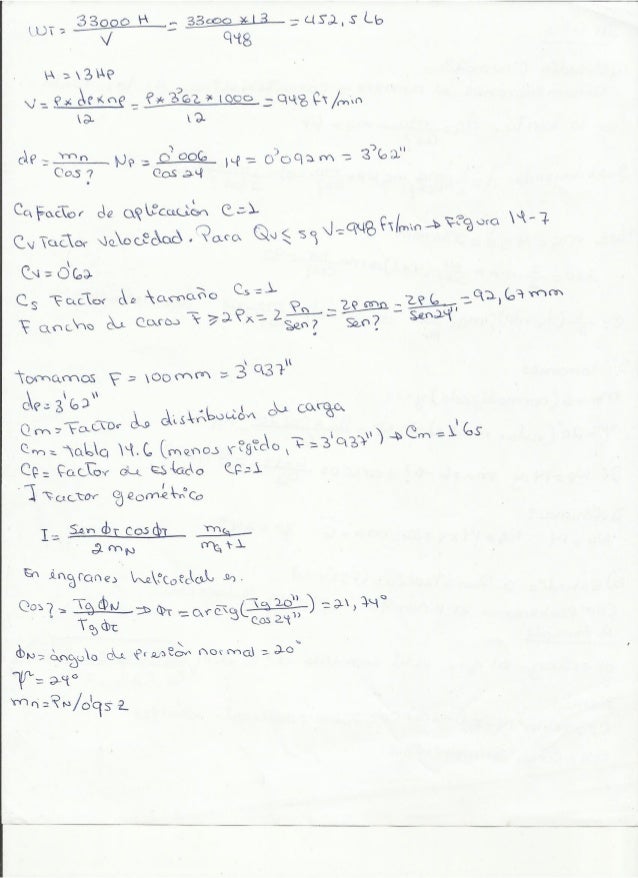 WT = 33000 H / V = 33000 * 13 / 948 = 452,5 Lb
H = 13 HP
V = P * dp * np / 12 = P * 3'62 * 1000 / 12 = 948 ft/min
dp = mn / Cos ? Np = 0'006 / Cos 24 14 = 0'092 m = 3'62"
Ca Factor de aplicación C=1
Cv Factor velocidad. Para Qv ≤ 5 q V = 948 ft/min → Figura 14-7
Cv = 0'62
Cs Factor de tamaño Cs = 1
F ancho de caras F ≥ 2Px = 2 Pn / Sen ? = 2P mn / Sen ? = 2P 6 / Sen 24" = 92,67 mm
tomamos F = 100 mm = 3'937"
dp = 3'62"
Cm = Factor de distribución de carga
Cm = tabla 14.6 (menos rígido, F = 3'937") → Cm = 1'65
Cf = factor de Estado Cf = 1
I Factor geométrico
I = Sen ΦT cos ΦT / 2 mN mG / mG + 1
En ingranes helicoidal es.
Cos ? = Tg ΦN / Tg Φt ⇒ ΦT = arctg (Tg 20" / Cos 24") = 21,74°
ΦN = ángulo de presión normal = 20°
Ψ = 24°
mn = PN / 0'95 Z